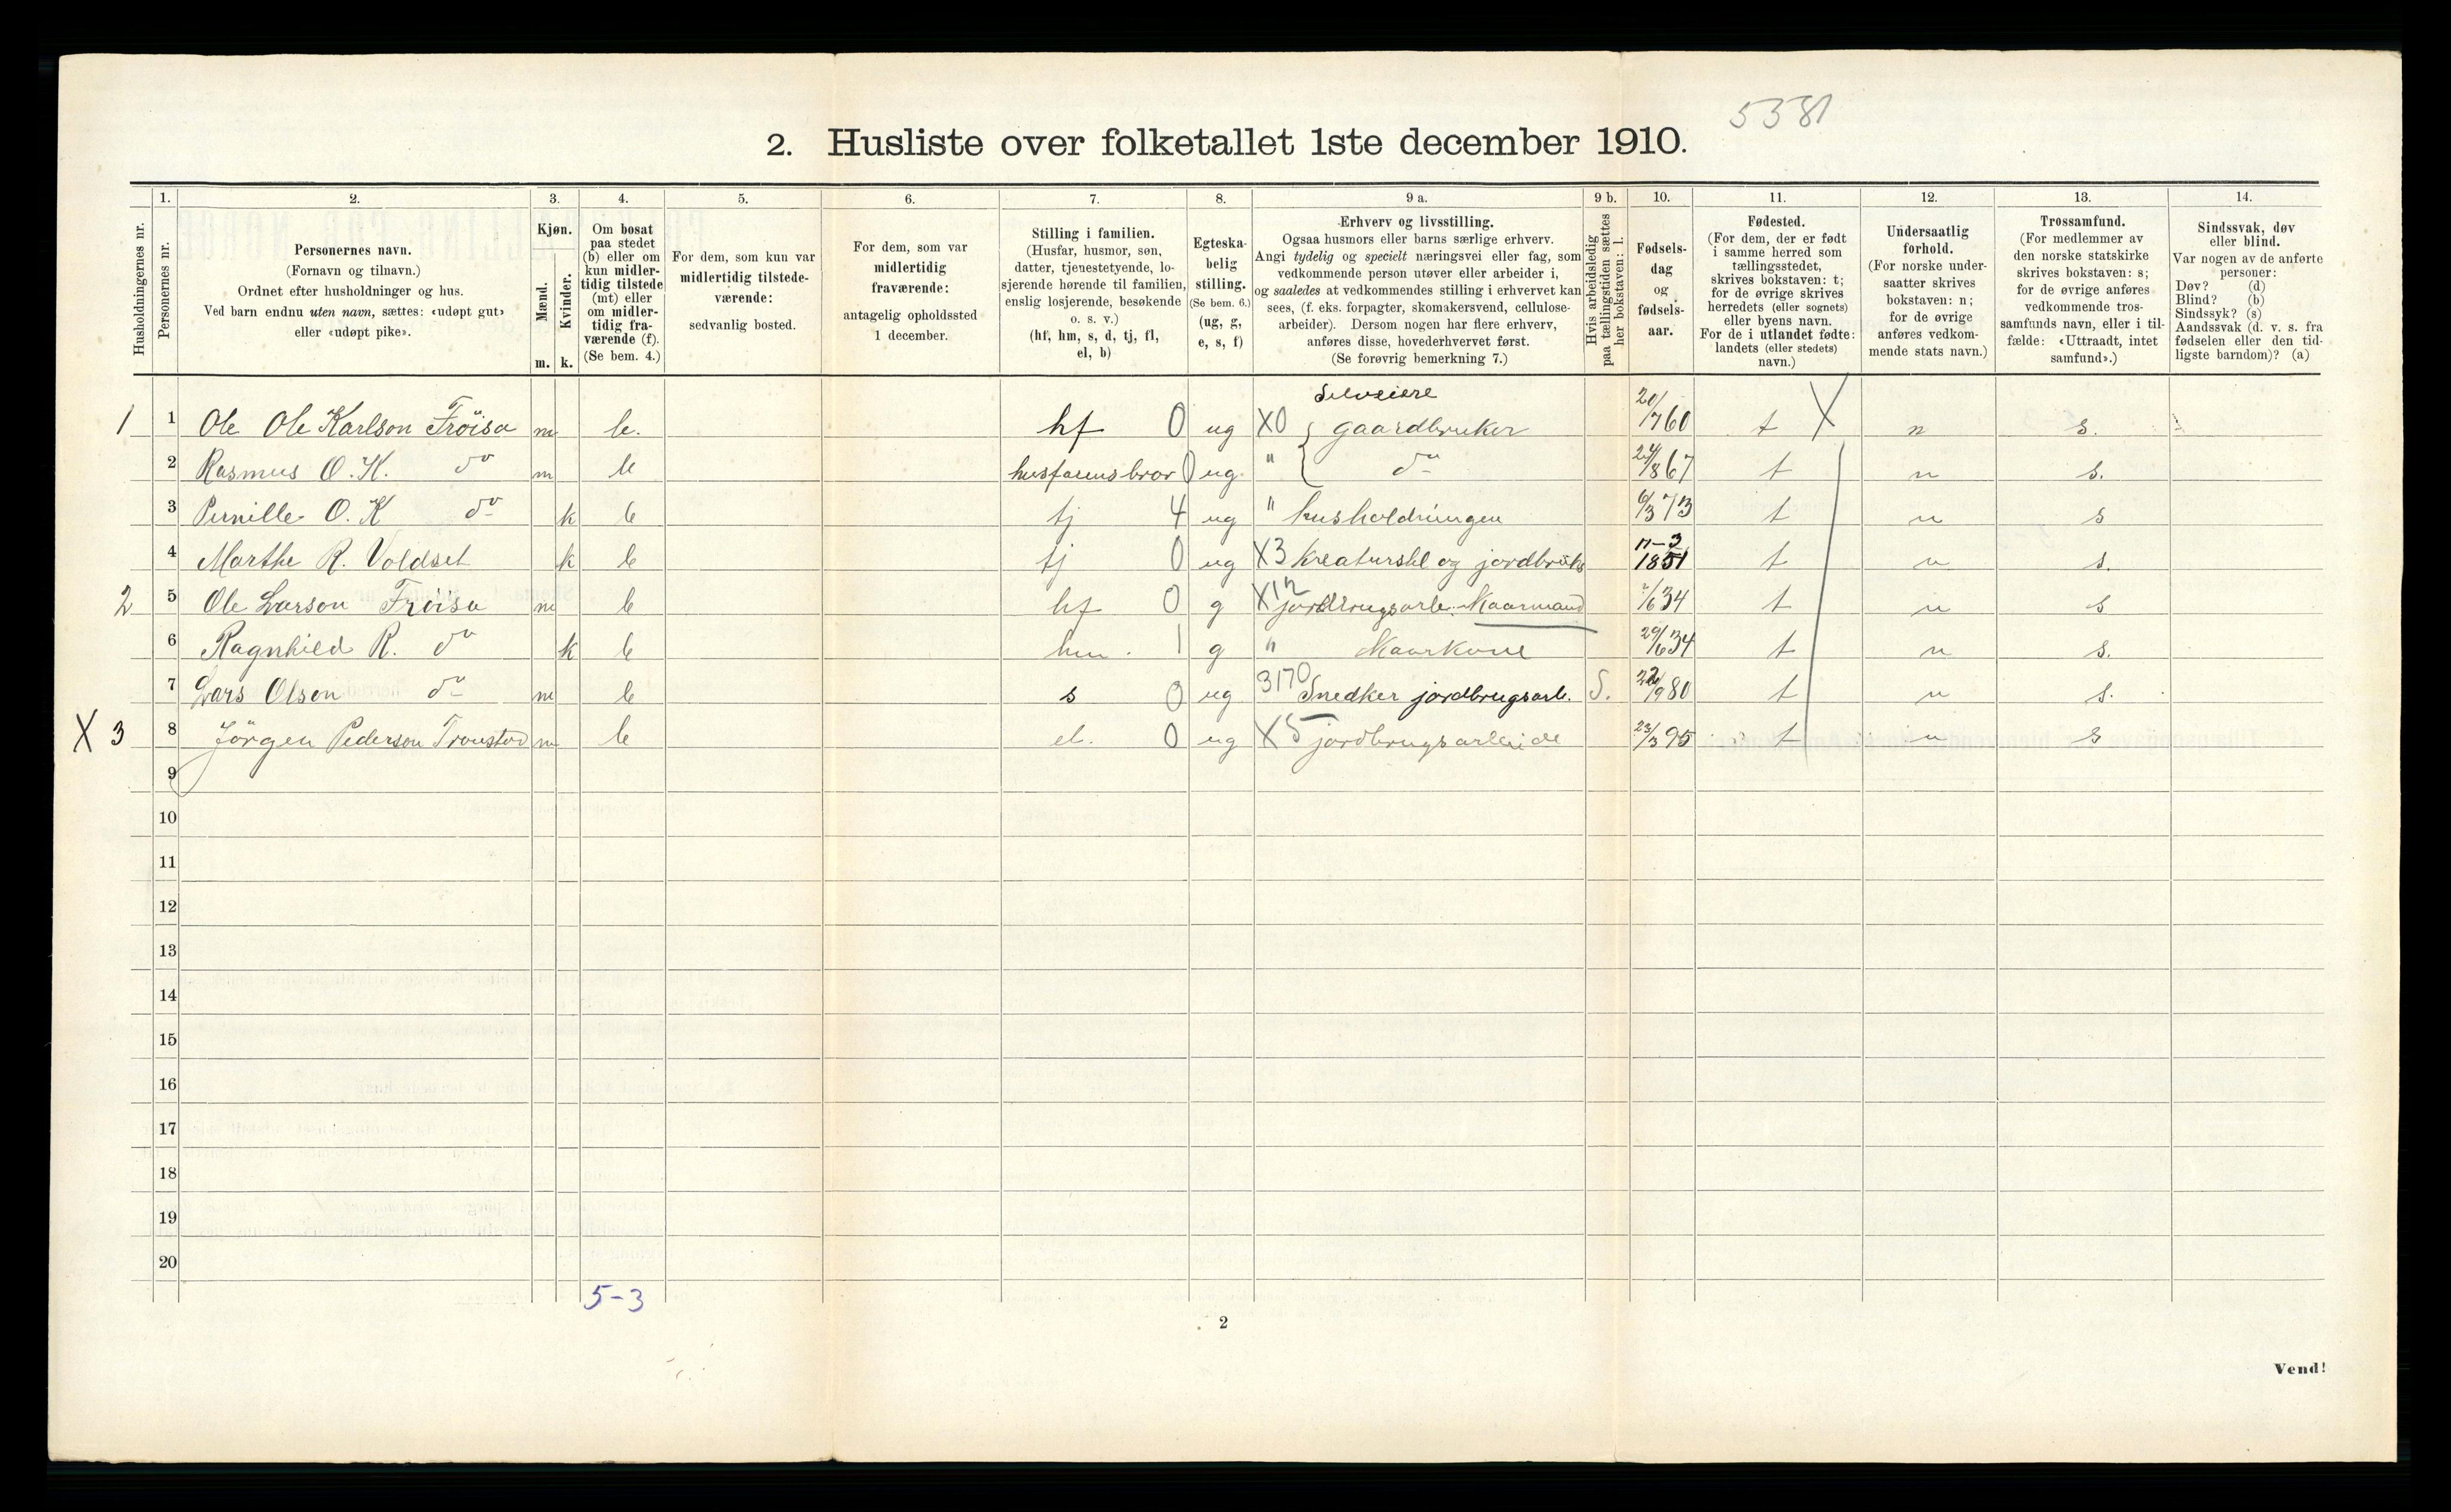 5381
2. Husliste over folketallet 1ste december 1910.
Husholdningernes nr.
1. Personernes nr.
2. Personernes navn.
(Fornavn og tilnavn.)
Ordnet efter husholdninger og hus.
Ved barn endnu uten navn, sættes: «udøpt gut»
eller «udøpt pike».
3. Kjøn.
Mænd. m.
Kvinder. k.
4. Om bosat
paa stedet
(b) eller om
kun midler-
tidig tilstede
(mt) eller
om midler-
tidig fra-
værende (f).
(Se bem. 4.)
5. For dem, som kun var
midlertidig tilstede-
værende:
sedvanlig bosted.
6. For dem, som var
midlertidig
fraværende:
antagelig opholdssted
1 december.
7. Stilling i familien.
(Husfar, husmor, søn,
datter, tjenestetyende, lo-
sjerende hørende til familien,
enslig losjerende, besøkende
o. s. v.)
(hf, hm, s, d, tj, fl,
el, b)
8. Egteska-
belig
stilling.
(Se bem. 6.)
(ug, g,
e, s, f)
9 a. Erhverv og livsstilling.
Ogsaa husmors eller barns særlige erhverv.
Angi tydelig og specielt næringsvei eller fag, som
vedkommende person utøver eller arbeider i,
og saaledes at vedkommendes stilling i erhvervet kan
sees, (f. eks. forpagter, skomakersvend, cellulose-
arbeider). Dersom nogen har flere erhverv,
anføres disse, hovederhvervet først.
(Se forøvrig bemerkning 7.)
9 b. Hvis arbeidsledig
paa tællingstiden sættes
her bokstaven: l.
10. Fødsels-
dag
og
fødsels-
aar.
11. Fødested.
(For dem, der er født
i samme herred som
tællingsstedet,
skrives bokstaven: t;
for de øvrige skrives
herredets (eller sognets)
eller byens navn.
For de i utlandet fødte:
landets (eller stedets)
navn.)
12. Undersaatlig
forhold.
(For norske under-
saatter skrives
bokstaven: n;
for de øvrige
anføres vedkom-
mende stats navn.)
13. Trossamfund.
(For medlemmer av
den norske statskirke
skrives bokstaven: s;
for de øvrige anføres
vedkommende tros-
samfunds navn, eller i til-
fælde: «Uttraadt, intet
samfund».)
14. Sindssvak, døv
eller blind.
Var nogen av de anførte
personer:
Døv? (d)
Blind? (b)
Sindssyk? (s)
Aandssvak (d. v. s. fra
fødselen eller den tid-
ligste barndom)? (a)
Selveiere
1 1 Ole Ole Karlson Fröisa m b. hf 0 ug X0 gaardbruker 20/7 60 t X n s.
2 Rasmus O. K. do m b husfarens bror 0 ug. " do 24/8 67 t n s.
3 Pernille O. K do k b tj 4 ug " husholdningen 6/3 73 t n s
4 Marthe R. Voldset k b tj 0 ug X3 kreaturstel og jordbruks 11-3 1851 t n s.
2 5 Ole Larson Fröisa m b hf 0 g X12 jordbrugsarb. Kaarmand 7/6 34 t n s
6 Ragnhild R. do k b hm. 1 g " Kaarkone 29/6 34 t n s.
7 Lars Olson do m b s 0 ug 3170 Snedker jordbrugsarb. S. 22/9 80 t n s.
X 3 8 Jörgen Pederson Tronstad m b el. 0 ug X5 jordbrugsarbeide 23/3 95 t n s
9
10
11
12
13
14
15
16
17
18
19
20
5-3
2
Vend!